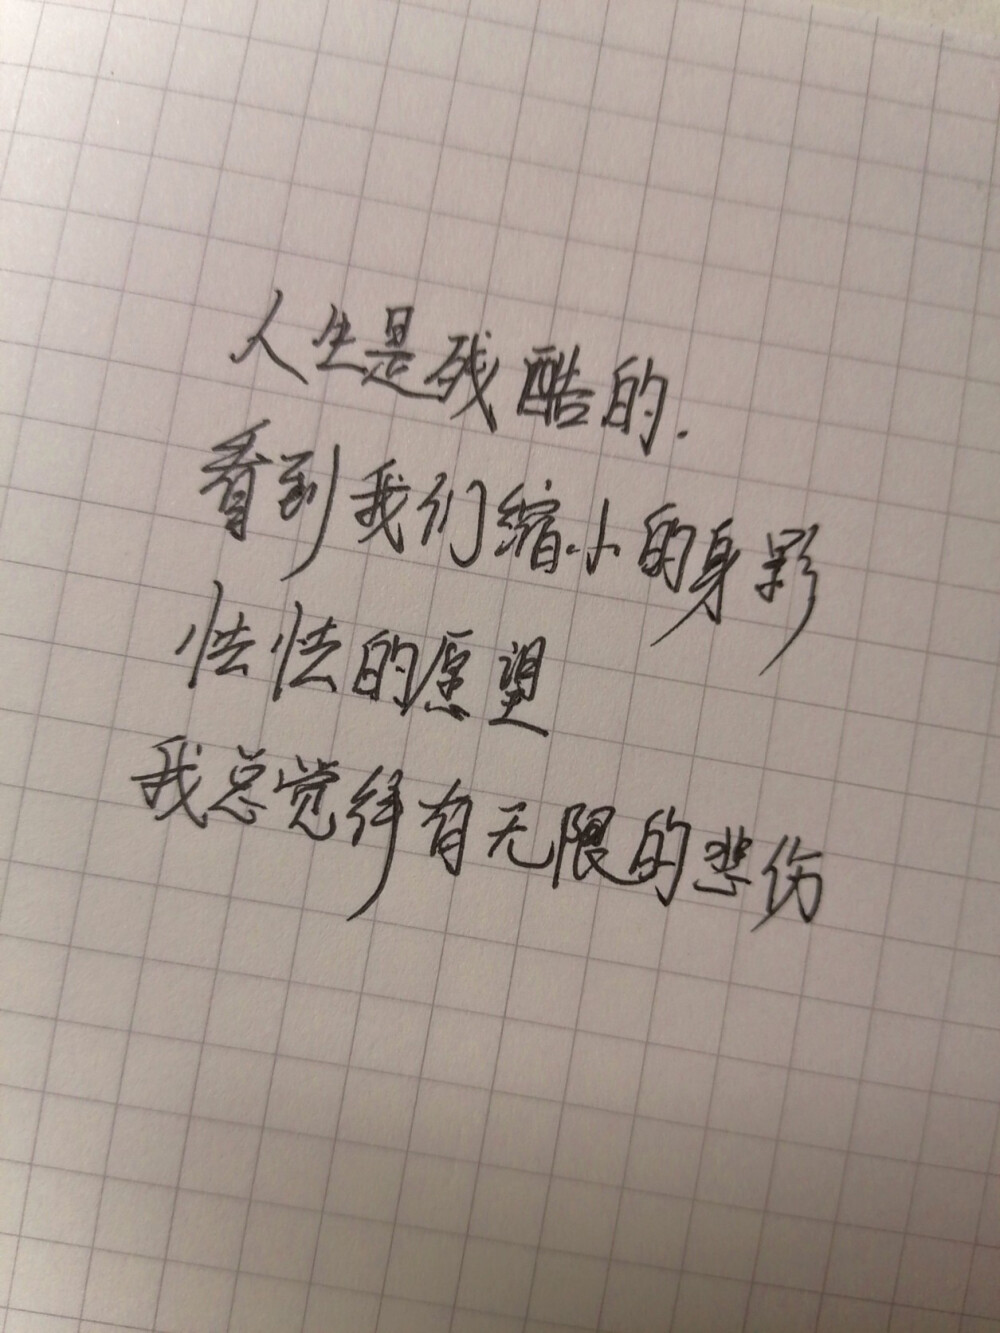 人生是残酷的.
看到我们缩小的身影
怯怯的愿望
我总觉得有无限的悲伤